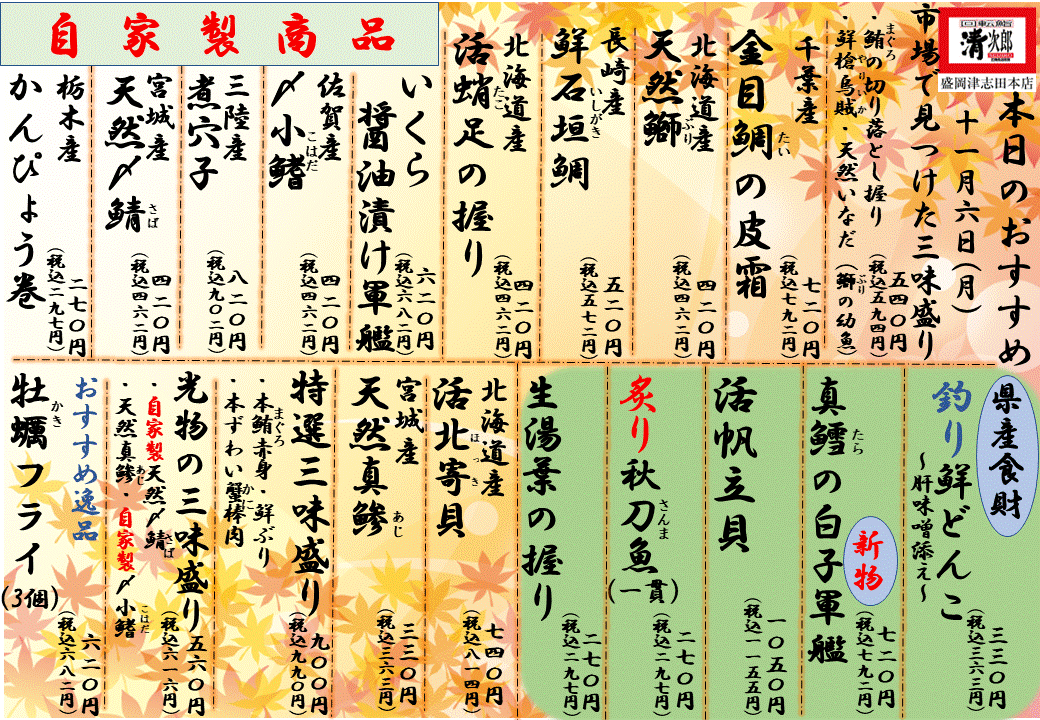 回転鮨
清次郎
盛岡津志田本店
本日のおすすめ
十一月六日(月)
市場で見つけた三味盛り
・鮪の切り落とし握り
まぐろ
・鮮槍烏賊・天然いなだ(鰤の幼魚)
やりいか
ぶり
五四〇円
(税込五九四円)
千葉産
金目鯛の皮霜
たい
七二〇円
(税込七九二円)
北海道産
天然鰤
ぶり
四二〇円
(税込四六二円)
長崎産
鮮石垣鯛
いしがき
五二〇円
(税込五七二円)
北海道産
活蛸足の握り
たこ
四二〇円
(税込四六二円)
自家製商品
いくら
醤油漬け軍艦
六二〇円
(税込六八二円)
佐賀産
〆小鰭
こはだ
四二〇円
(税込四六二円)
三陸産
煮穴子
八二〇円
(税込九〇二円)
宮城産
天然〆鯖
さば
四二〇円
(税込四六二円)
栃木産
かんぴょう巻
二七〇円
(税込二九七円)
県産食財
釣り鮮どんこ
~肝味噌添え~
三三〇円
(税込三六三円)
新物
真鱈の白子軍艦
たら
七二〇円
(税込七九二円)
活帆立貝
一〇五〇円
(税込一一五五円)
炙り秋刀魚(一貫)
さんま
二七〇円
(税込二九七円)
生湯葉の握り
二七〇円
(税込二九七円)
北海道産
活北寄貝
ほっき
七四〇円
(税込八一四円)
宮城産
天然真鯵
あじ
三三〇円
(税込三六三円)
特選三味盛り
・本鮪赤身・鮮ぶり
まぐろ
・本ずわい蟹棒肉
かに
九〇〇円
(税込九九〇円)
光物の三味盛り
・自家製天然〆鯖
さば
・天然真鯵・自家製〆小鰭
あじ
こはだ
五六〇円
(税込六一六円)
おすすめ逸品
牡蠣フライ(3個)
かき
六二〇円
(税込六八二円)